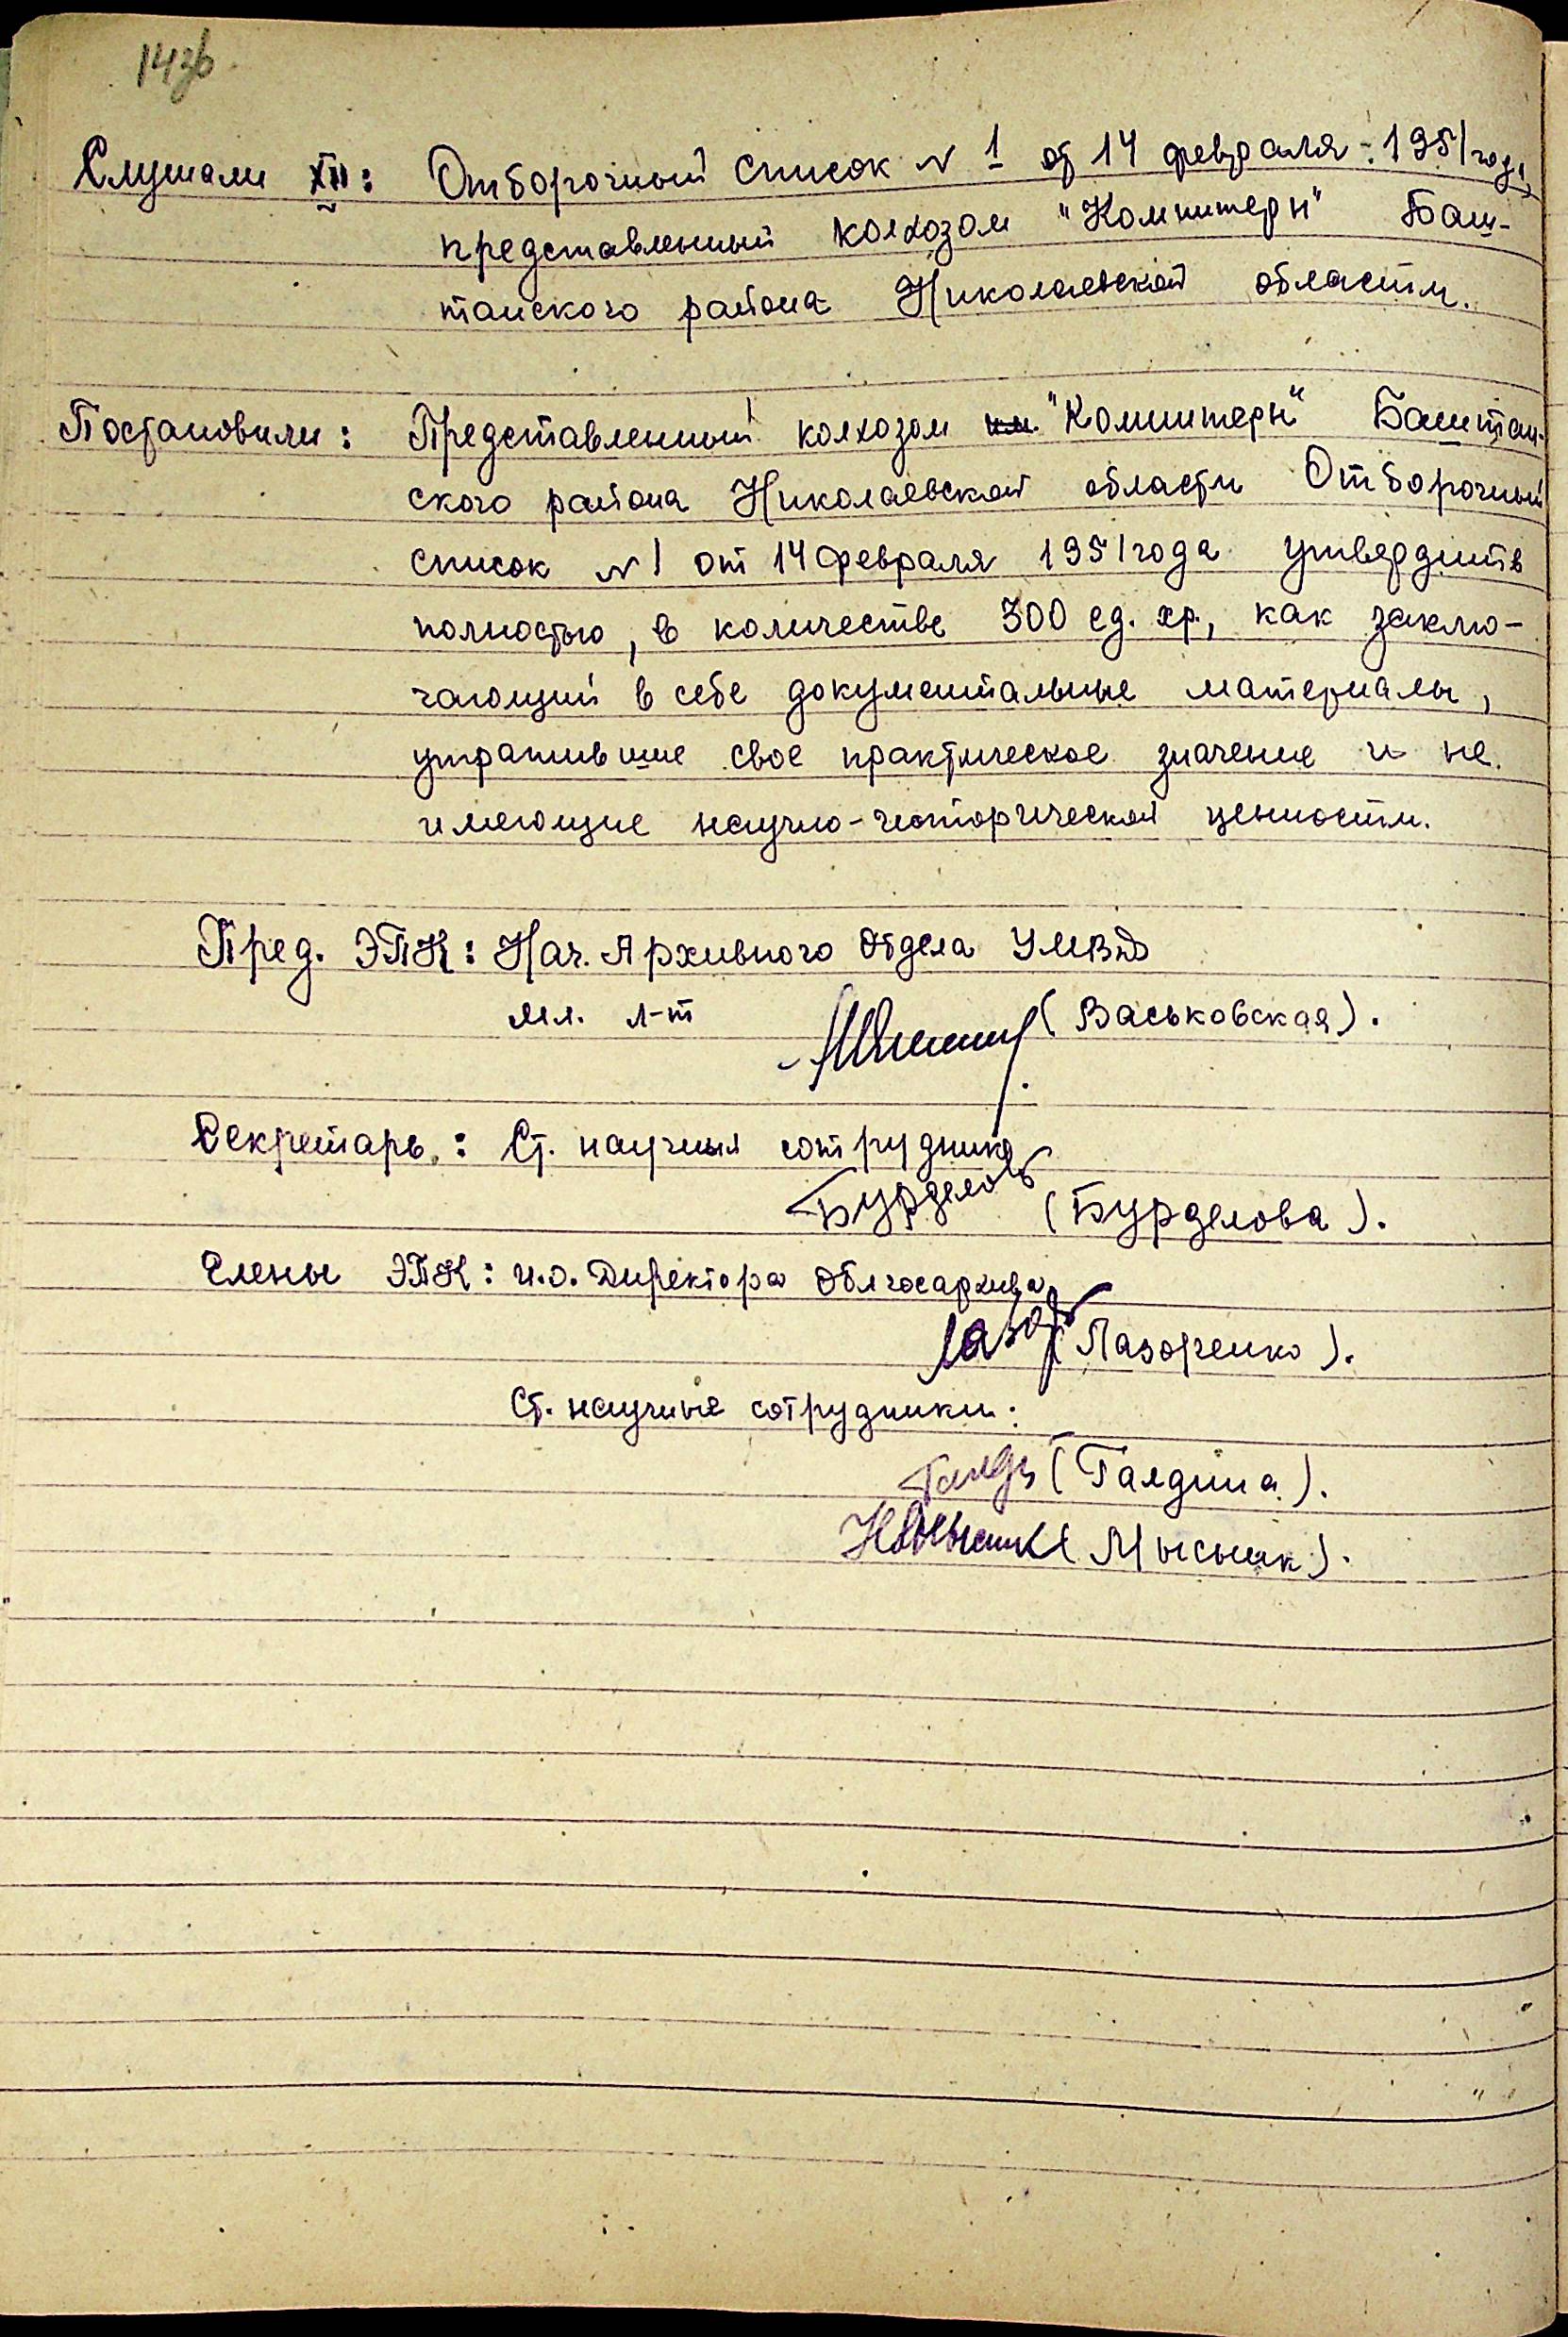 143б
Слушали XII: Отборочный список № 1 от 14 февраля 1951 года,
представленный колхозом "Коминтерн" Баш-
танского района Николаевской области.
Постановили: Представленный колхозом им. "Коминтерн" Баштан-
ского района Николаевской области Отборочный
список № 1 от 14 февраля 1951 года утвердить
полностью, в количестве 300 ед. хр., как заклю-
чающий в себе документальные материалы,
утратившие свое практическое значение и не
имеющие научно-исторической ценности.
Пред. ЭПК: Нач. Архивного Отдела УМВД
мл. л-т (Васьковская).
Секретарь: Ст. научный сотрудник
Бурделов (Бурделова).
Члены ЭПК: и.о. Директора Облгосархива
Лазор (Лазоренко).
Ст. научные сотрудники:
Галд (Галдина).
(Мысник).